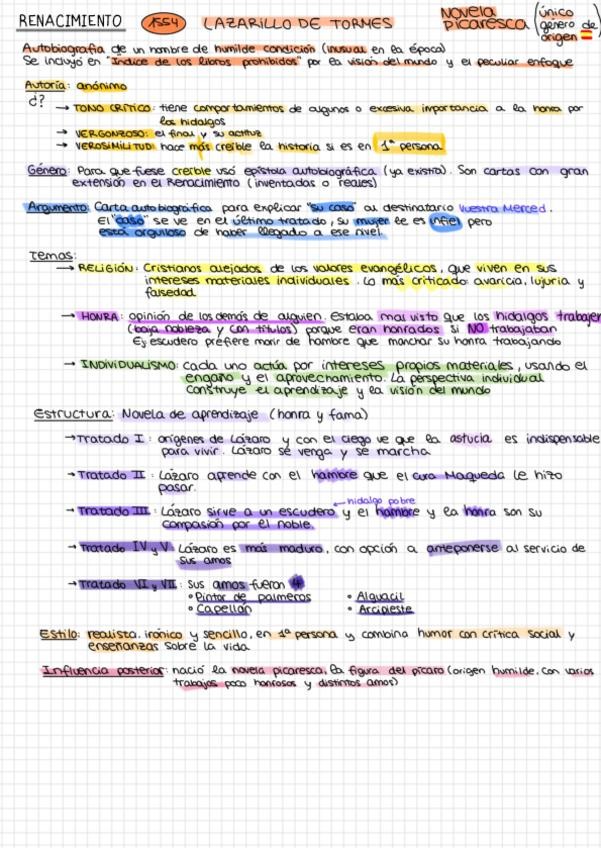 RENACIMIENTO 1554 LAZARILLO DE TORMES Novela Picaresca (único género de origen 🇪🇸
Autobiografía de un hombre de humilde condición (inusual en la época)
Se incluyó en "Índice de los libros prohibidos" por la visión del mundo y el peculiar enfoque
Autoría: anónimo
¿?
→ TONO CRÍTICO: tiene comportamientos de algunos o excesiva importancia a la honra por
los hidalgos
→ VERGONZOSO: el final y su actitud
→ VEROSIMILITUD: hace más creíble la historia si es en 1ª persona
Género: Para que fuese creíble usó epístola autobiográfica (ya existía). Son cartas con gran
extensión en el Renacimiento (inventadas o reales)
Argumento: Carta autobiográfica para explicar "su caso" al destinatario Vuestra Merced.
El "caso" se ve en el último tratado, su mujer le es infiel pero
está orgulloso de haber llegado a ese nivel.
Temas:
→ RELIGIÓN: Cristianos alejados de los valores evangélicos, que viven en sus
intereses materiales individuales. Lo más criticado: avaricia, lujuria y
falsedad
→ HONRA: opinión de los demás de alguien. Estaba mal visto que los hidalgos trabajen
(baja nobleza y con títulos) porque eran honrados si NO trabajaban
Ej escudero prefiere morir de hambre que manchar su honra trabajando
→ INDIVIDUALISMO: cada uno actúa por intereses propios materiales, usando el
engaño y el aprovechamiento. La perspectiva individual
construye el aprendizaje y la visión del mundo
Estructura: Novela de aprendizaje (honra y fama)
→ Tratado I: orígenes de Lázaro y con el ciego ve que la astucia es indispensable
para vivir. Lázaro se venga y se marcha
→ Tratado II: Lázaro aprende con el hambre que el cura Maqueda le hizo
pasar.
hidalgo pobre
→ Tratado III: Lázaro sirve a un escudero y el hambre y la honra son su
compasión por el noble.
→ Tratado IV y V: Lázaro es más maduro, con opción a anteponerse al servicio de
sus amos
→ Tratado VI y VII: Sus amos fueron 4
• Pintor de palmeros • Alguacil
• Capellán • Arcipreste
Estilo: realista, irónico y sencillo, en 1ª persona y combina humor con crítica social y
enseñanzas sobre la vida.
Influencia posterior: nació la novela picaresca, la figura del pícaro (origen humilde, con varios
trabajos poco honrosos y distintos amos)